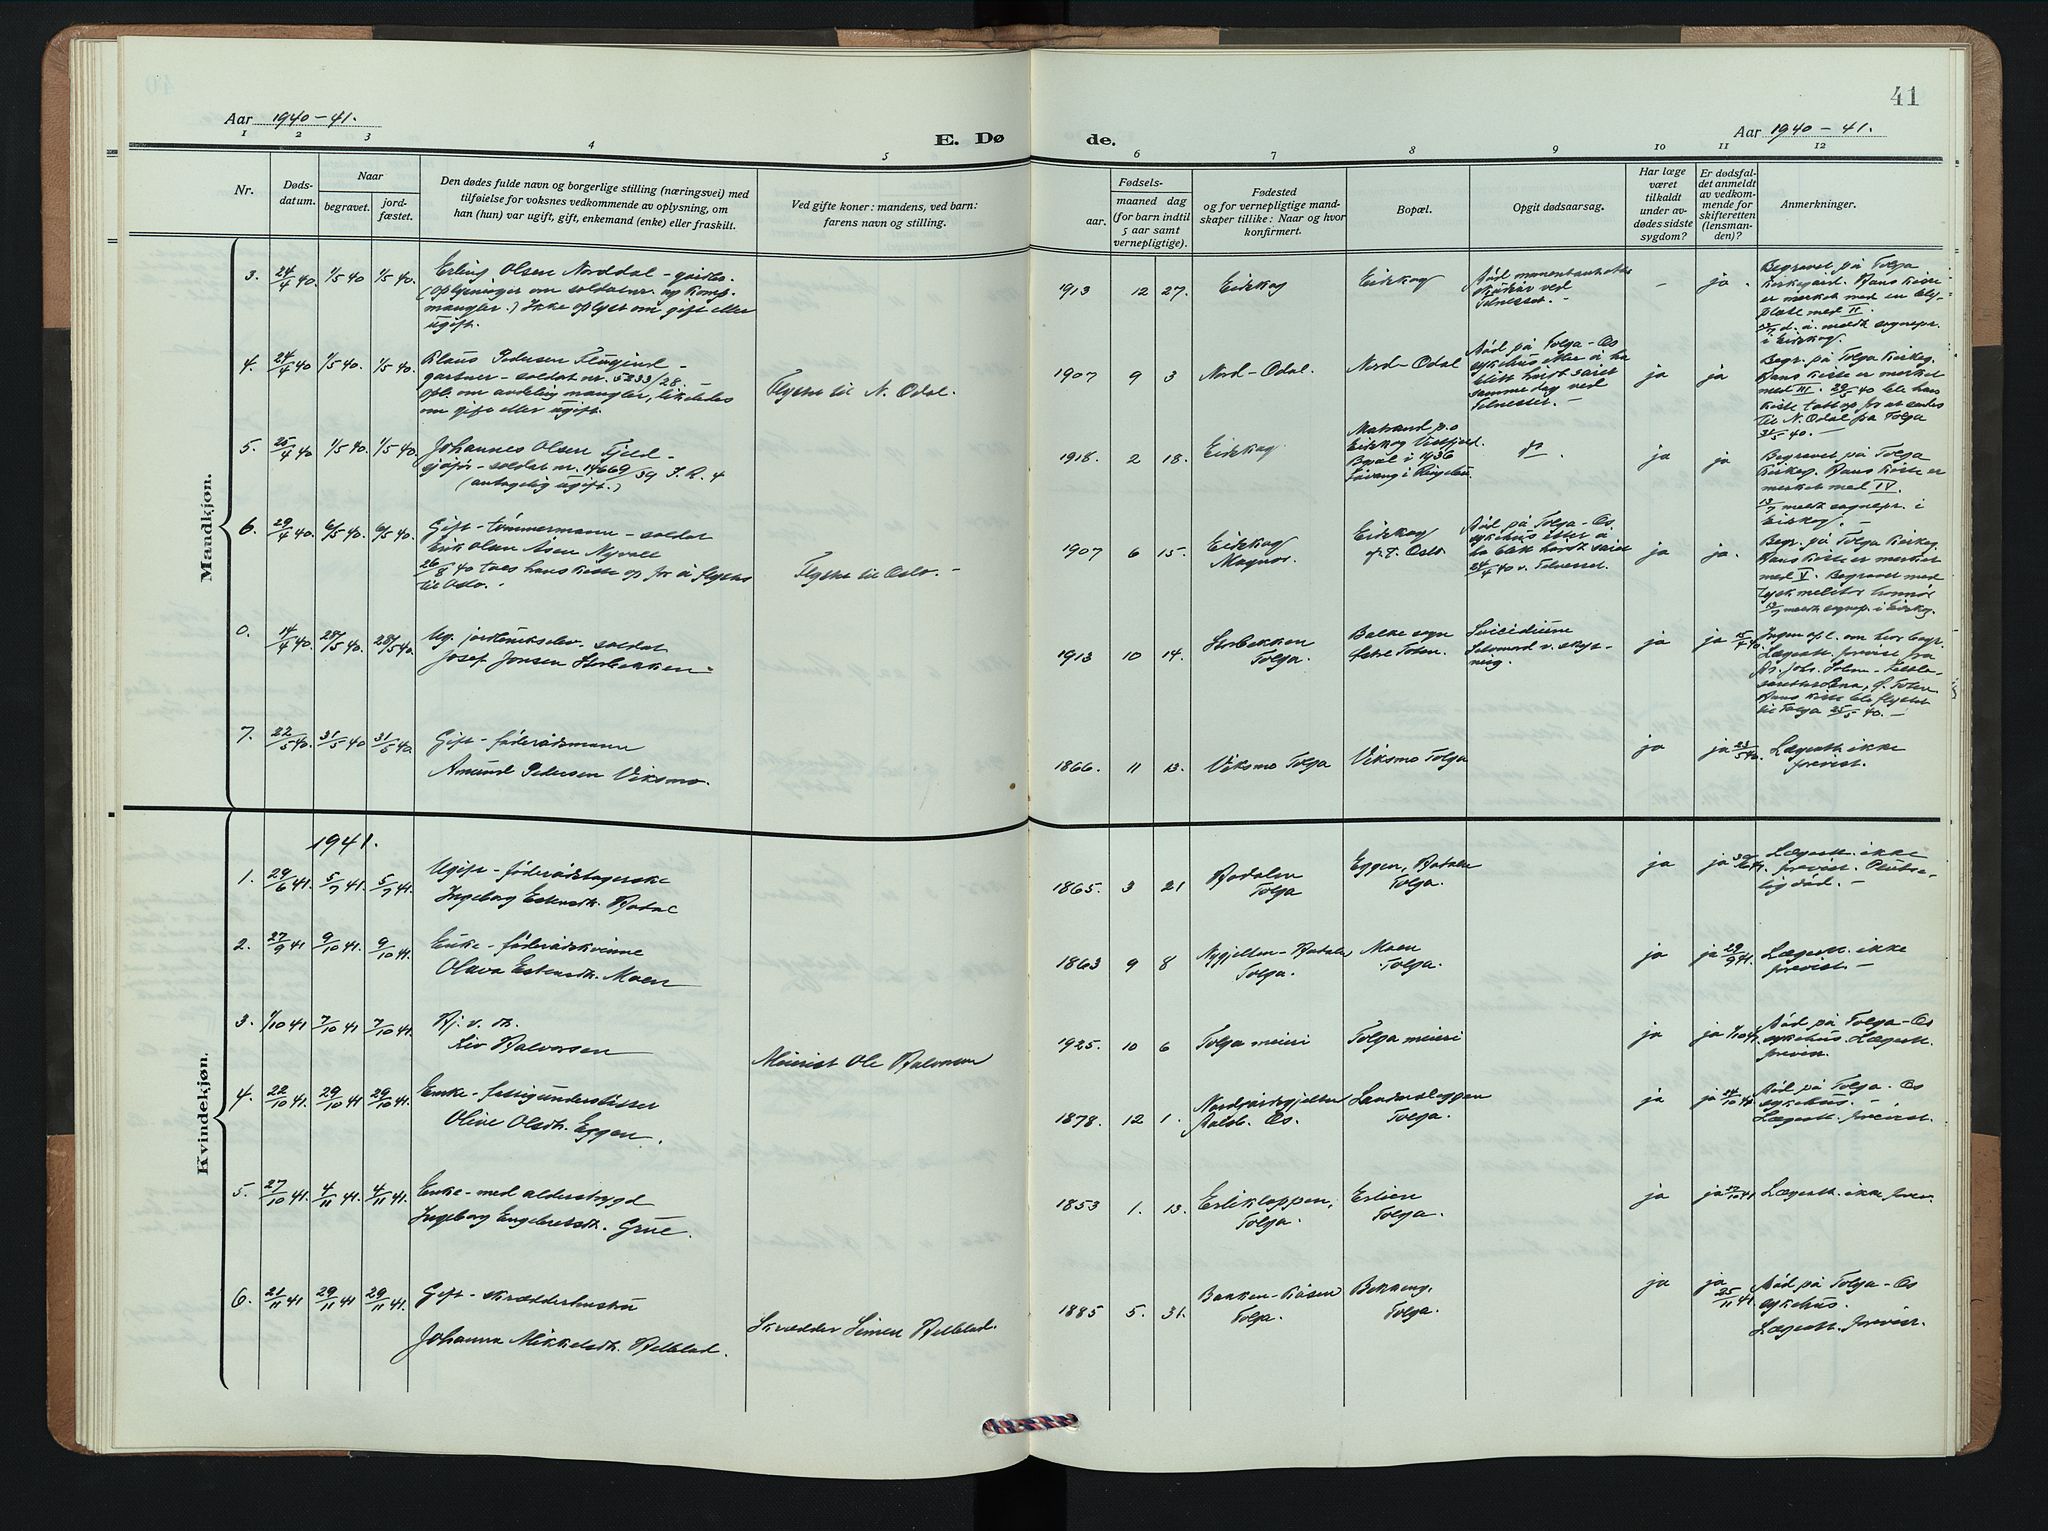 41
Aar 1940-41.
E. Dø de.
Aar 1940-41.
1 2 3 4 5 6 7 8 9 10 11 12
Nr.
Døds-
datum.
Naar
begravet.
jord-
fæstet.
Den dødes fulde navn og borgerlige stilling (næringsvei) med
tilføielse for voksnes vedkommende av oplysning, om
han (hun) var ugift, gift, enkemand (enke) eller fraskilt.
Ved gifte koner: mandens, ved barn:
farens navn og stilling.
Fødsels-
aar.
maaned dag
(for barn indtil
5 aar samt
vernepligtige).
Fødested
og for vernepligtige mand-
skaper tillike: Naar og hvor
konfirmert.
Bopæl.
Opgit dødsaarsag.
Har læge
været
tilkaldt
under av-
dødes sidste
sygdom?
Er dødsfal-
det anmeldt
av vedkom-
mende for
skifteretten
(lensman-
den)?
Anmerkninger.
Mandkjøn.
3. 24/4 40. 1/5 40 1/5 40. Erling Olsen Norddal - gårdbr.
(oplysninger om soldatnr. og komp.
mangler.) Ikke oplyst om gift eller
ugift.
1913 12 27. Eidskog Eidskog
Telnesset. -
- ja.
Begravet på Tolga
Kirkegård. Hans kiste
er merket med en bly-
plate med II.
13/7 d.å. meldt sognepr.
i Eidskog.
4. 24/4 40 1/5 40. 1/5 40. Klaus Pedersen
gartner - soldat nr. 5233/28. -
opl. om avdeling mangler, likeledes
om gift eller ugift.
Flyttet til N. Odal.
1907 9 3 Nord-Odal. Nord-Odal
Død på Tolga-Os
sykehus efter å ha
blitt hårdt såret
samme dag ved
Telnesset. -
ja ja
Begr. på Tolga Kirkeg.
Hans kiste er merket
med III. 29/5 40 ble hans
kiste tatt op for at sendes
til N. Odal fra Tolga
31/5 40. -
5. 25/4 40 1/5 40. 1/5 40. Johannes Olsen Fjeld -
sjåfør - soldat nr. 14669/39 I.R. 4
(antagelig ugift.)
1918. 2 18. Eidskog
Matrand p.o
Eidskog
Bopæl i 1936
ja ja
Begravet på Tolga
Kirkeg. Hans kiste er
merket med IV.
13/7 meldt sognepr. i
Eidskog. -
6. 29/4 40. 6/5 40. 6/5 40. Gift - tømmermann - soldat
Erik Olsen Åsen Nyvoll
26/8 40 toes hans kiste op for å flyttes
til Oslo. -
Flyttet til Oslo. -
1907 6 15. Eidskog
Magnor.
Eidskog
p.t. Oslo
Død på Tolga-Os.
sykehus etter å
ha blitt hårdt såret
24/4 40 v. Telnesset.
ja ja.
Begr. på Tolga Kirkeg.
Hans kiste er merket
med V. Begravet med
tysk militær honnør
13/7 meldt sognep. i Eidskog.
0. 14/4 40. 28/5 40. 28/5 40. Ug. jordbrukselev - soldat
Josef Jonsen Storbekken.
1913 10 14. Storbekken
Tolga.
Balke sogn
østre Toten.
Suicidium
Selvmord v. skyt-
ning.
ja ja 15/4 40.
Ingen opl. om hvor begr.
Lægeatt. forevist fra
Lena, Ø. Toten.
Hans kiste ble flyttet
til Tolga 25/5 40. -
7. 22/5 40. 31/5 40 31/5 40. Gift - føderådsmann
Amund Pedersen Viksmo.
1866. 11 13. Viksmo Tolga Viksmo Tolga
ja ja 23/5 40.
Lægeatt. ikke
forevist.
Kvindekjøn.
1941.
1. 29/6 41. 5/7 41. 5/7 41. Ugift - føderådstagerske
Ingeborg Estensdtr. Hodal
1865. 3 21 Hodalen
Tolga
Eggen, Hodalen
Tolga.
ja ja 30/6 41.
Lægeatt. ikke
forevist. Plutse-
lig død. -
2. 27/9 41 9/10 41. 9/10 41. Enke - føderådskvinne
Olava Estensdtr. Moen
1863 9 8 Nygjelten-Hodalen
Tolga.
Moen
Tolga.
ja ja 29/9 41.
Lægeatt. ikke
forevist. -
3. 1/10 41 7/10 41 7/10 41. Hj. v. dtr.
Liv Halvorsen
Meierist Ole Halvorsen
1925. 10 6 Tolga meieri Tolga meieri
ja ja 1/10 41
Død på Tolga-Os
sykehus. Lægeatt.
forevist.
4. 22/10 41. 29/10 41 29/10 41. Enke - fattigunderstøttet
Olive Olsdtr. Eggen.
1878. 12 1.
Dalsb. Os.
Tolga.
ja ja 24/10 41
Død på Tolga-Os
sykehus. -
Lægeatt. forevist.
5. 27/10 41. 4/11 41. 4/11 41. Enke - med alderstrygd
Ingeborg Engebretsdtr. Grue.
1853 1. 13. Erlikloppen,
Tolga.
Erlien
Tolga.
ja ja
Lægeatt. ikke forev.
6. 21/11 41 29/11 41 29/11 41. Gift - skrædderhustru
Johanna Mikkelsdtr. Hellelad.
Skrædder Simen Hellelad.
1885 5. 31. Bakken-Kåsen
Tolga.
Bekkeng.
Tolga.
ja ja 25/11 41
Død på Tolga-Os
sykehus.
Lægeatt. forevist.